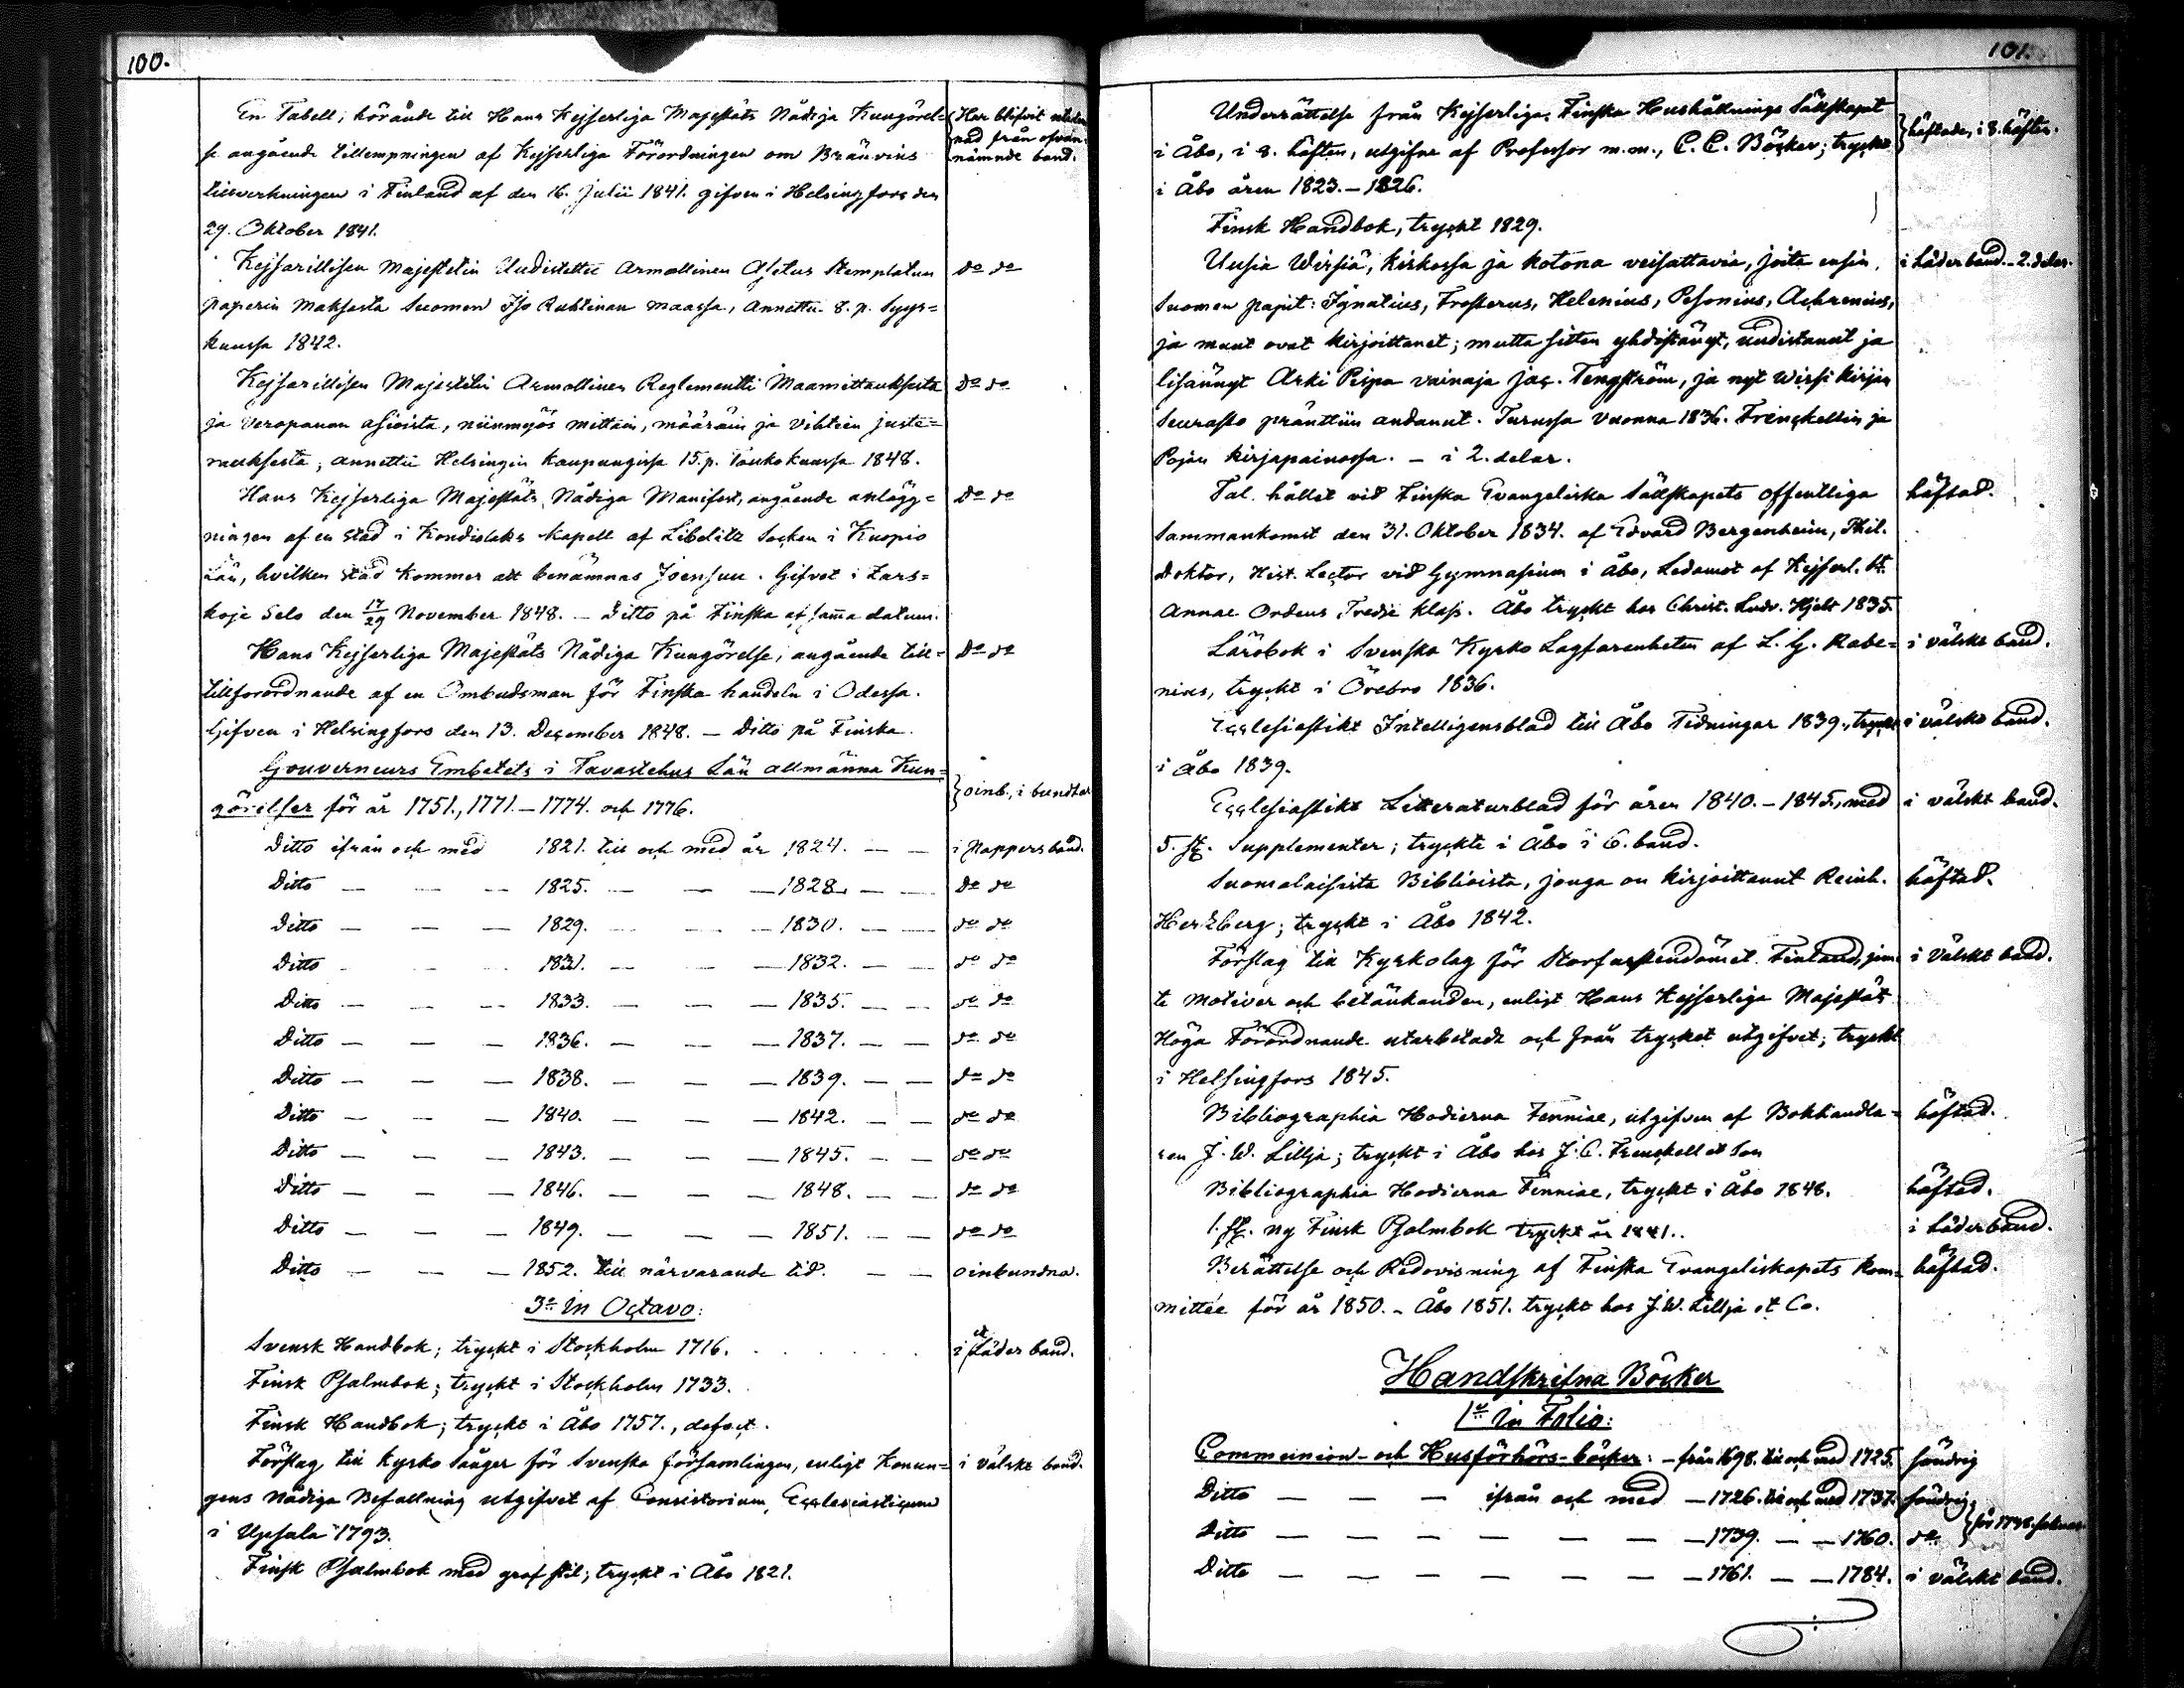 100.
En Tabell, hörande till Hans Kejserliga Majestäts Nådiga Kungörel= Har blifvit
se angående tillempningen af Kejserliga Förordningen om Bränvins nad från ofvan
tillverkningen i Finland af den 16. Julii 1841. gifven i Helsingfors den nämnde band.
29. Oktober 1841.
Kejsarillisen Majestetin Uudistettu Armollinen Asetus Stemplatun Do do
paperin Maksosta Suomen Iso Ruhtinan maassa, Annettu 8. p. Syys=
kuussa 1842.
Kejsarillisen Majestetin Armollinen Reglementti Maamittauksesta Do do
ja Veropanon asioista, niinmyös mittain, määräin ja Vihtien juste=
rauksesta; annettu Helsingin Kaupungissa 15. p. Toukokuussa 1848.
Hans Kejserliga Majestäts Nådiga Manifest, angående anlägg= Do do
ningen af en stad i Kondiolaks Kapell af Libelitz Socken i Kuopio
Län, hvilken stad kommer att benämnas Joensuu. Gifvet i Zars=
koje Selo den 17/29 November 1848. – Ditto på Finska af samma datum.
Hans Kejserliga Majestäts Nådiga Kungörelse, angående till= Do do
tillforordnande af en Ombudsman för Finska handeln i Odessa.
Gifven i Helsingfors den 13. December 1848. – Ditto på Finska.
Gouverneurs Embetets i Tavastehus Län allmänna Kun=
görelser för år 1751., 1771. – 1774. och 1776. oinb., i bundtar
Ditto ifrån och med 1821. till och med år 1824. — — i Pappersband.
Ditto — — — 1825. — — — 1828. — — Do do
Ditto — — — 1829. — — — 1830. — — do do
Ditto — — — 1831. — — — 1832. — — do do
Ditto — — — 1833. — — — 1835. — — do do
Ditto — — — 1836. — — — 1837. — — do do
Ditto — — — 1838. — — — 1839. — — do do
Ditto — — — 1840. — — — 1842. — — do do
Ditto — — — 1843. — — — 1845. — — do do
Ditto — — — 1846. — — — 1848. — — do do
Ditto — — — 1849. — — — 1851. — — do do
Ditto — — — 1852. till närvarande tid. — — oinbundna.
3o In Octavo:
Svensk Handbok; tryckt i Stockholm 1716. i et Läder band.
Finsk Psalmbok; tryckt i Stockholm 1733.
Finsk Handbok; tryckt i Åbo 1757., defect.
Förslag till Kyrko Sånger för Svenska församlingen, enligt Konun= i välskt band.
gens Nådiga Befallning utgifvet af Consistorium Ecclesiasticum
i Upsala 1793.
Finsk Psalmbok med grof stil; tryckt i Åbo 1821.
101.
Underrättelse från Kejserliga Finska Hushållnings Sällskapet
i Åbo, i 8. häften, utgifne af Professor m.m., C. C. Böcker; tryckt häftade, i 8. häften.
i Åbo åren 1823. – 1826.
Finsk Handbok, tryckt 1829.
Uusia Wirsiä, kirkossa ja kotona veisattavia, joita ensin i Läderband. – 2. delar.
Suomen papit: Ignatius, Frosterus, Helenius, Pesonius, Achrenius,
ja muut ovat kirjoittanet; mutta sitten yhdistänyt, uudistanut ja
lisännyt Arki Pispa vainaja Jac. Tengström, ja nyt Wirsi kirjan
Seurasto präntiin andanut. Turussa Vuonna 1836. Frenckellin ja
Pojan kirjapainossa. – i 2. delar.
Tal. hållet vid Finska Evangeliska Sällskapets offentliga häftad.
Sammankomst den 31. Oktober 1834. af Edvard Bergenheim, Phil.
Doktor, Hist. Lector vid Gymnasium i Åbo, Ledamot af Kejserl. St.
Annae Ordens Tredje klass. Åbo tryckt hos Christ. Ludv. Hjelt 1835.
Lärobok i Svenska Kyrko Lagfarenheten af L. G. Rabe= i välskt band.
nius, tryckt i Örebro 1836.
Ecclesiastikt Intelligensblad till Åbo Tidningar 1839., tryckt i välskt band.
i Åbo 1839.
Ecclesiastikt Litteraturblad för åren 1840. – 1845., med i välskt band.
5. st. Supplementer; tryckte i Åbo i 6. band.
Suomalaisista Biblioista, jonga on kirjoittanut Reinh. häftad.
Hertzberg; tryckt i Åbo 1842.
Förslag till Kyrkolag för Storfurstendömet Finland, jem= i välskt band.
te motiver och betänkanden, enligt Hans Kejserliga Majestäts
Höga Förordnande utarbetadt och från trycket utgifvet; tryckt
i Helsingfors 1845.
Bibliographia Hodierna Fenniae, utgifven af Bokhandla= häftad.
ren J. W. Lillja; tryckt i Åbo hos J. C. Frenckell et Son
Bibliographia Hodierna Fenniae, tryckt i Åbo 1848. häftad.
1. st. ny Finsk Psalmbok tryckt år 1841. i Läderband.
Berättelse och Redovisning af Finska Evangeliskapets Kom= häftad.
mittée för år 1850. – Åbo 1851. tryckt hos J. W. Lillja et Co.
Handskrifna Böcker
1o In Folio:
Communion- och Husförhörs-böcker: – från 1698. till och med 1725. söndrig
Ditto — — — ifrån och med — 1726. till och med 1737. söndrig
Ditto — — — — — — — 1739. — — 1760. do för 1738. saknas
Ditto — — — — — — — 1761. — — 1784. i välskt band.